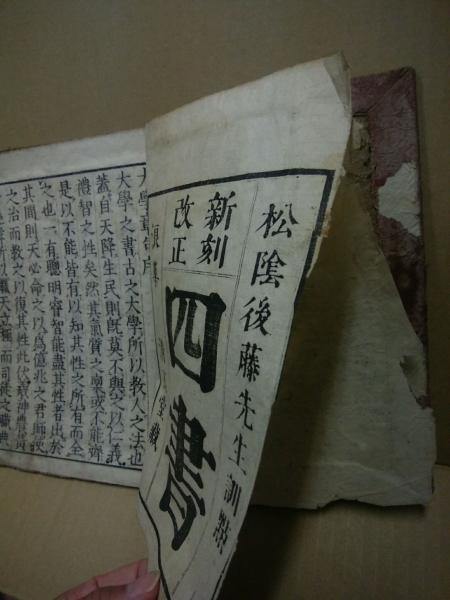 松陰後藤先生訓點
新刻
改正
四書
大學章句序
大學之書古之大學所以敎人之法也
蓋自天降生民則旣莫不與之以仁義
禮智之性矣然其氣質之稟或不能齊
是以不能皆有以知其性之所有而全
之也一有聰明睿智能盡其性者出於
其間則天必命之以爲億兆之君師使
之治而敎之以復其性此伏羲神農黃
所以繼天立極而司徒之職典